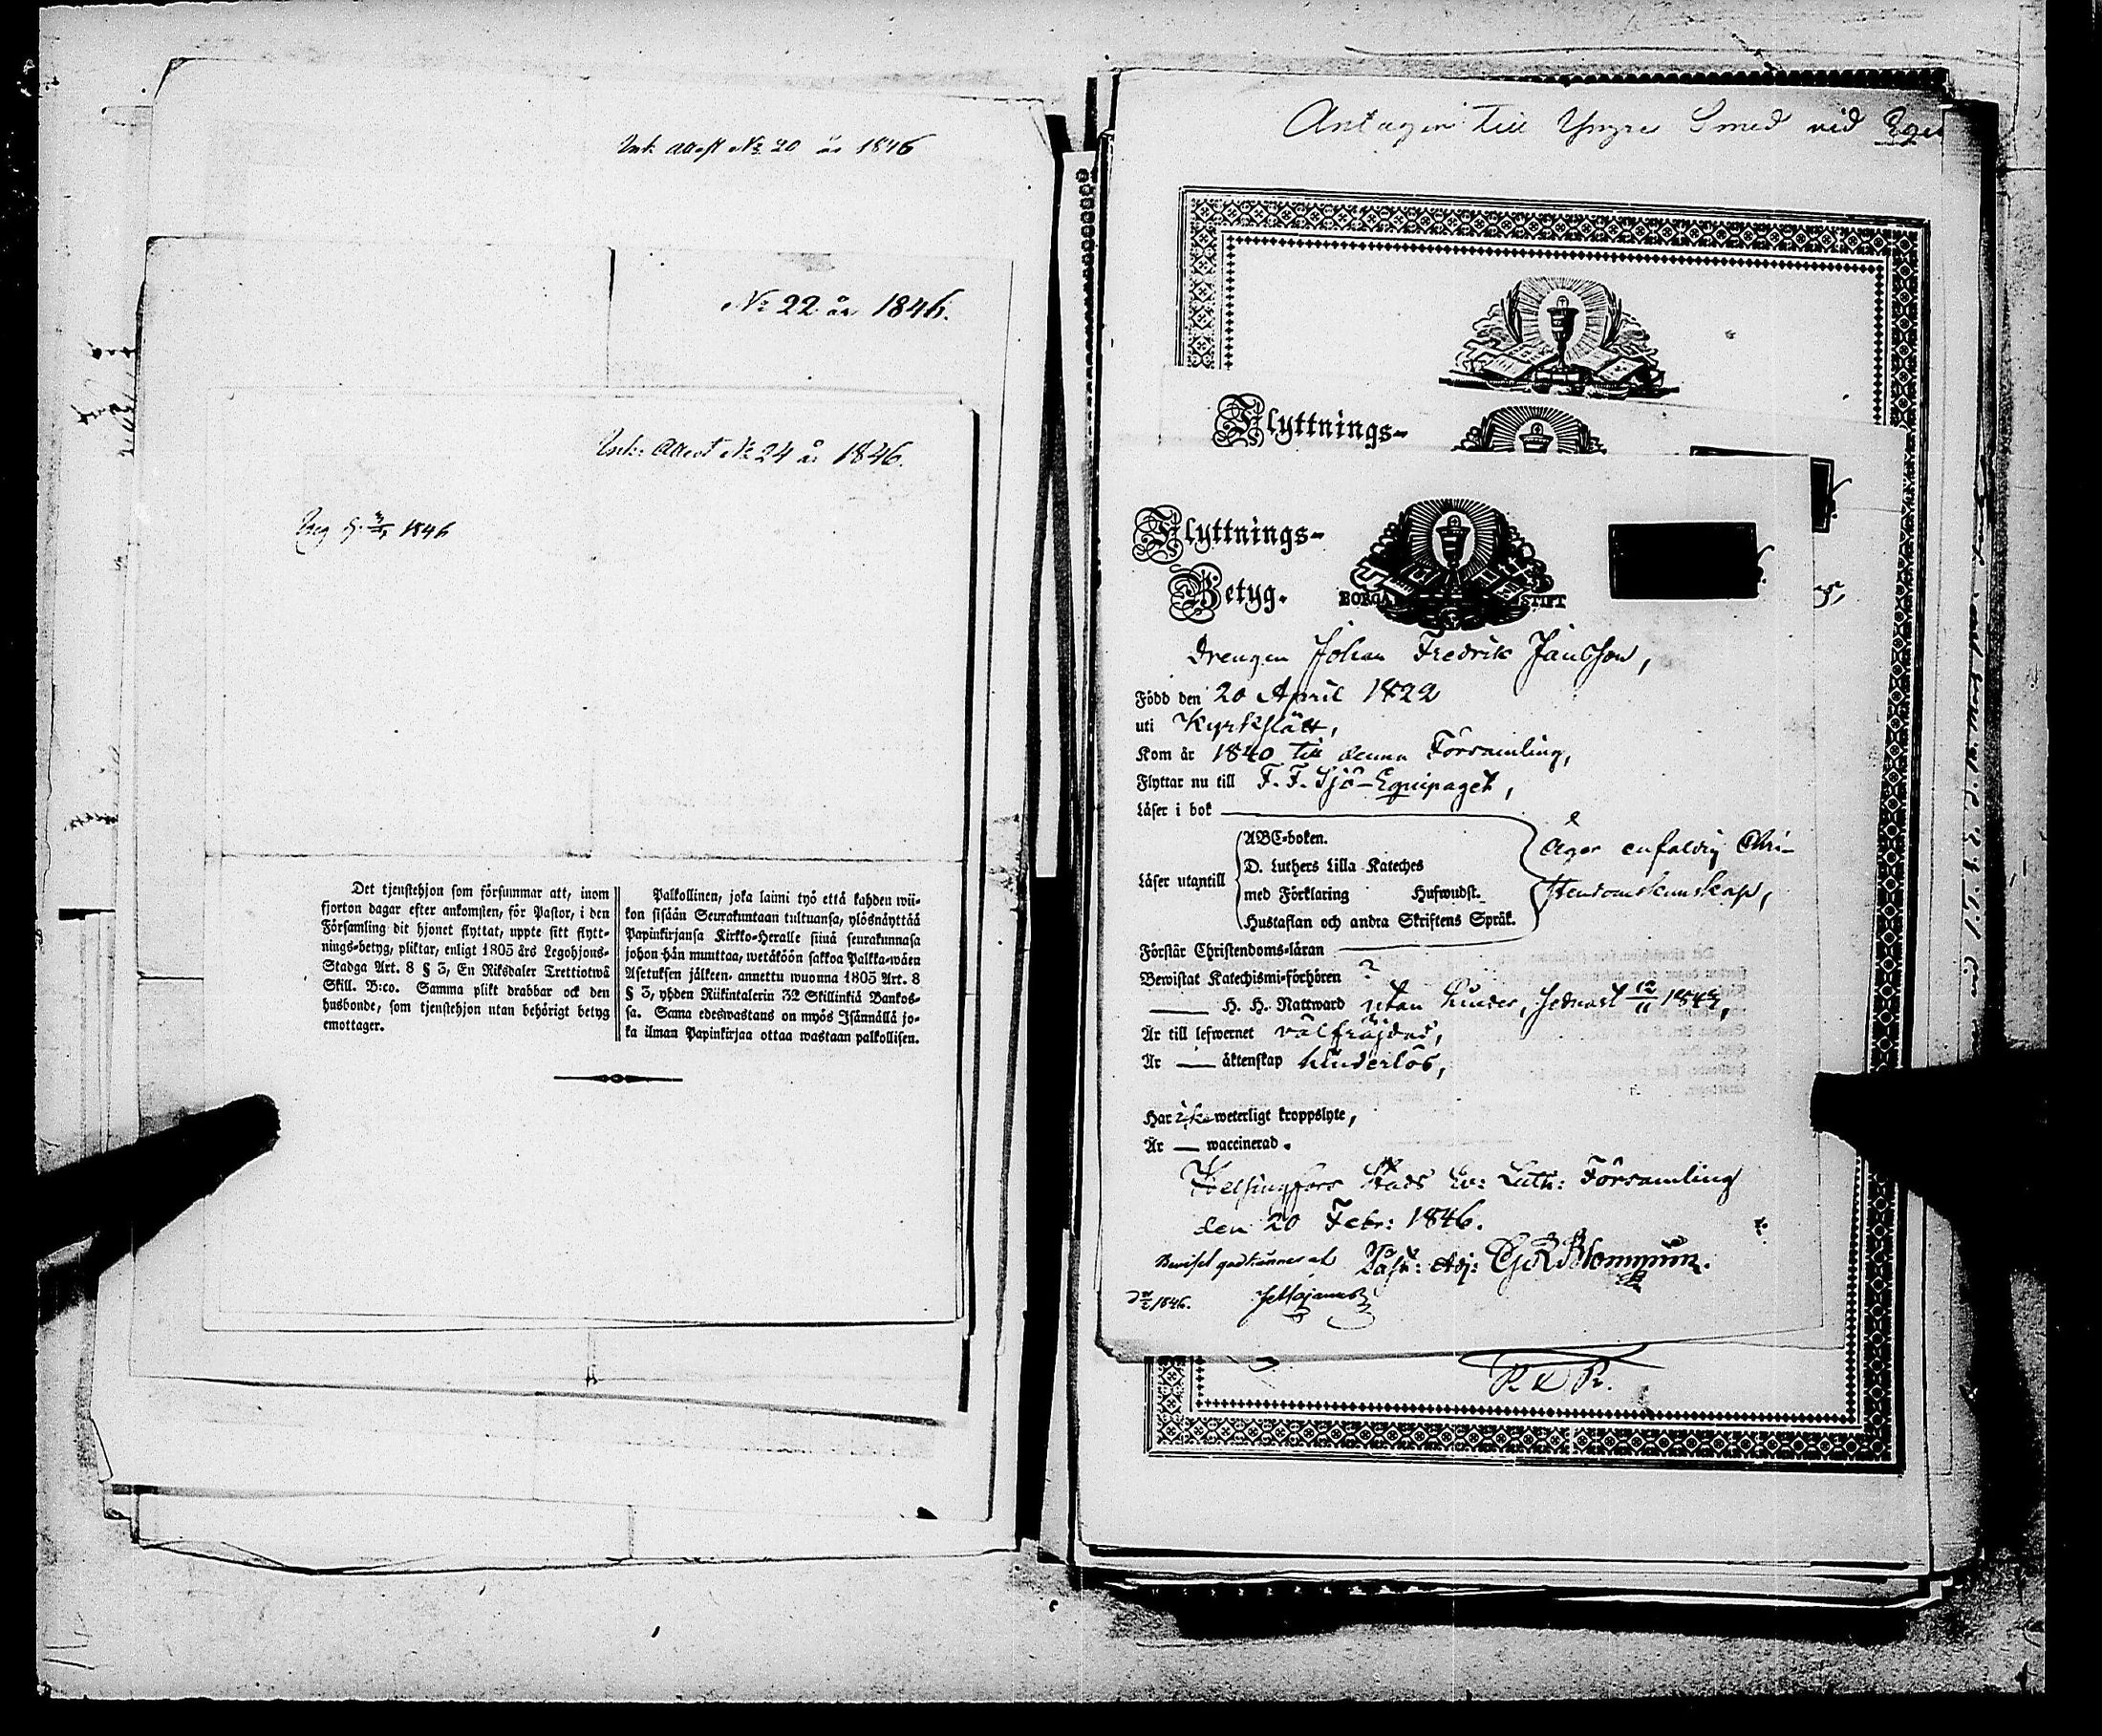 Ink. Attest No 20 år 1846
No 22 år 1846.
Ink. Attest No 24 år 1846.
1846
Det tjenstehjon som försummar att, inom
fjorton dagar efter ankomsten, för Pastor, i den
Församling dit hjonet flyttat, uppte sitt flytt-
nings-betyg, pliktar, enligt 1805 års Legohjons-
Stadga Art. 8 § 3, En Riksdaler Trettiotwå
Skill. B:co. Samma plikt drabbar ock den
husbonde, som tjenstehjon utan behörigt betyg
emottager.
Palkollinen, joka laimi lyö että kahden wii-
kon sisään Seurakuntaan tultuansa, ylösnäyttää
Papinkirjansa Kirkko-Heralle siinä seurakunnasa
johon hän muuttaa, wetäköön sakkoa Palkka-wäen
Asetuksen jälkeen, annettu wuonna 1805 Art. 8
§ 3, yhden Riikintalerin 32 Skillinkiä Bankos-
sa. Sama edeswastaus on myös Isännällä jo-
ka ilman Papinkirjaa ottaa wastaan palkollisen.
Antagen till Yngre Smed vid
Flyttnings-
Flyttnings-
Betyg.
BORGÅ STIFT
Drengen Johan Fredrik Jansson,
Född den 20 April 1822
uti Kyrkslätt,
Kom år 1840 till denna Församling,
Flyttar nu till F. F. Sjö-Equipaget,
Läser i bok
Läser utantill
ABC-boken.
D. Luthers Lilla Kateches
med Förklaring Hufwudst.
Hustaflan och andra Skriftens Språk.
Äger enfaldig Chri-
stendomskunskap,
Förstår Christendoms-läran
Bewistat Katechismi-förhören ?
H. H. Nattward utan hinder, sednast 12/11 184
Är till lefwernet välfräjdad,
Är — äktenskap hinderlös,
Har icke weterligt kroppslyte,
Är — waccinerad.
Helsingfors Stads Ev: Luth: Församling
den 20 Febr: 1846.
Beviset godkännes af
1846.